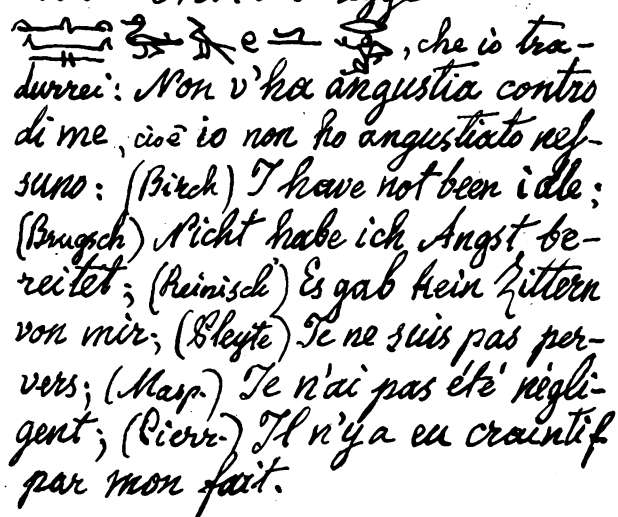 e , che io tra-
durrei: Non v'ha angustia contro
di me, cioè io non ho angustiato nes-
suno: (Birch) I have not been idle;
(Brugsch) Nicht habe ich Angst be-
reitet; (Reinisch) Es gab kein Zittern
von mir; (Pleyte) Je ne suis pas per-
vers; (Masp.) Je n'ai pas été négli-
gent; (Pierr.) Il n'y a eu craintif
par mon fait.